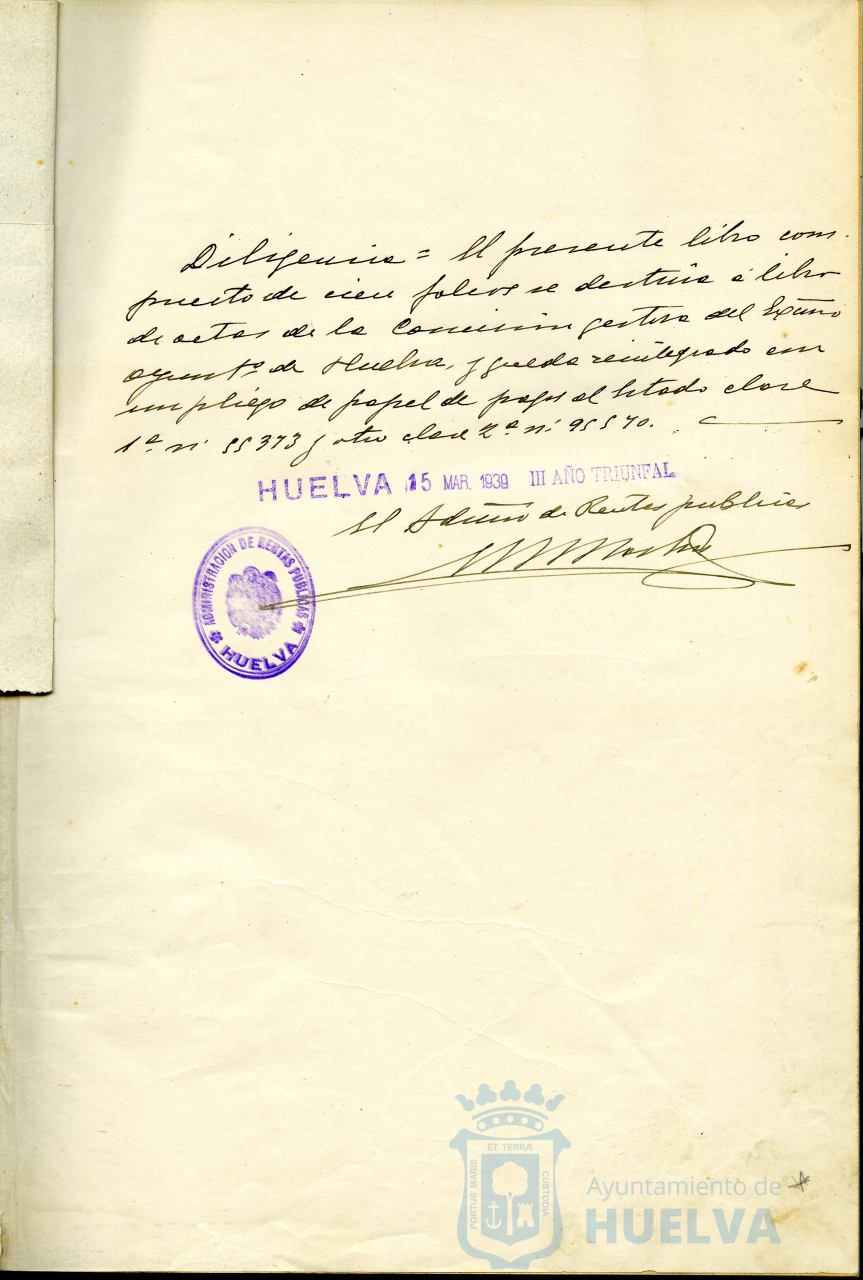 Diligencia = El presente libro com-
puesto de cien folios se destina a libro
de actas de la Comision gestora del Exmo
Ayunt.º de Huelva, y queda reintegrado con
un pliego de papel de pagos al Estado clase
1ª nº 55373 y otro clase 2ª nº 95570.
HUELVA 15 MAR. 1939 III AÑO TRIUNFAL
El Admor de Rentas publicas
ADMINISTRACION DE RENTAS PUBLICAS
HUELVA
ET TERRÆ
PORTUS MARIS
CUSTODIA
Ayuntamiento de
HUELVA